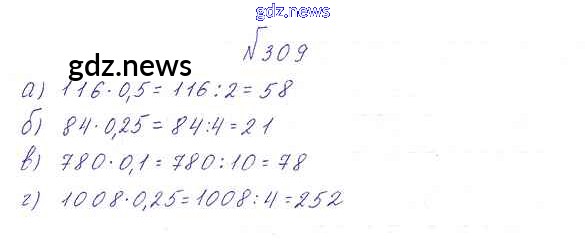 gdz.news
№309
gdz.news
а) 116·0,5=116:2=58
б) 84·0,25=84:4=21
в) 780·0,1=780:10=78
г) 1008·0,25=1008:4=252